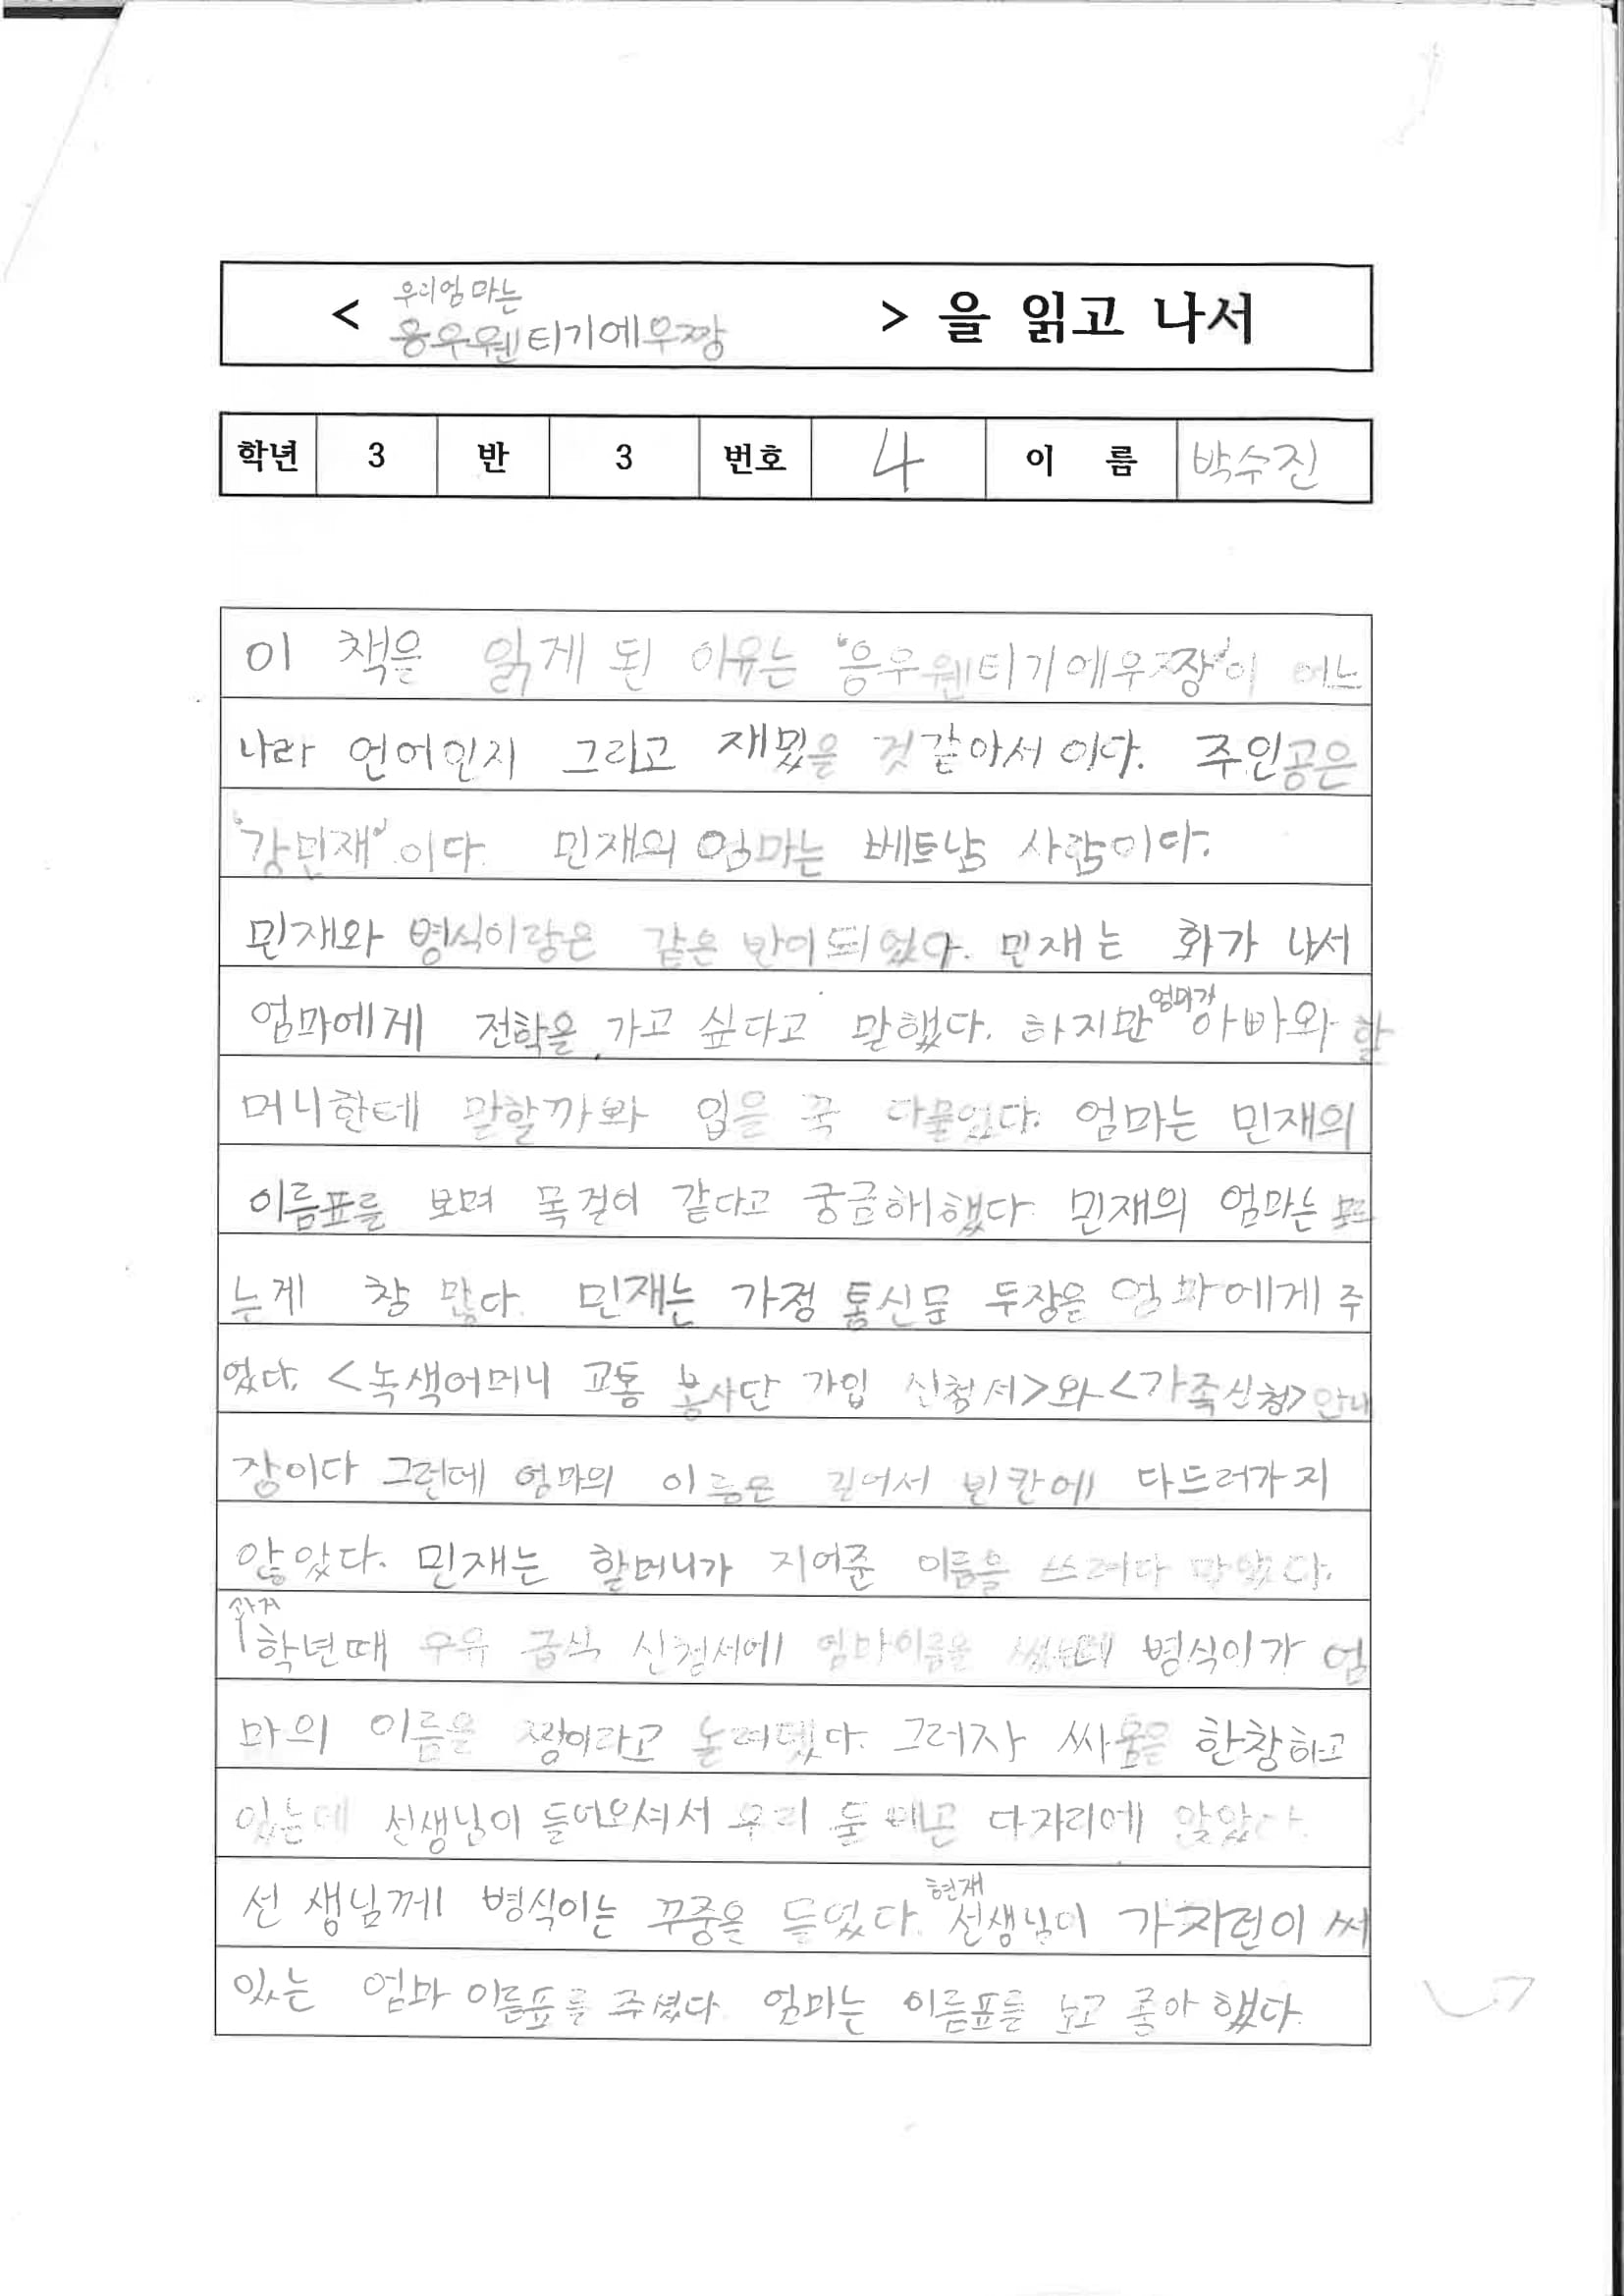 우리엄마는
< 응우웬티기에우짱 > 을 읽고 나서
학년 3 반 3 번호 4 이 름 박수진
이 책을 읽게 된 이유는 '응우웬티기에우짱'이 어느
나라 언어인지 그리고 재밌을 것같아서 이다. 주인공은
'강민재'이다. 민재의 엄마는 베트남 사람이다.
민재와 병식이랑은 같은 반이되었다. 민재는 화가 나서
엄마에게 전학을 가고 싶다고 말했다. 하지만 엄마가 아빠와 할
머니한테 말할까봐 입을 꾹 다물었다. 엄마는 민재의
이름표를 보며 목걸이 같다고 궁금해했다. 민재의 엄마는 모르
는게 참 많다. 민재는 가정 통신문 두장을 엄마에게 주
었다. <녹색어머니 교통 봉사단 가입 신청서>와 <가족신청> 안내
장이다 그런데 엄마의 이름은 길어서 빈칸에 다드러가지
않았다. 민재는 할머니가 지어준 이름을 쓰려다 말았다.
과거
1학년때 우유 급식 신청서에 엄마이름을 썼는데 병식이가 엄
마의 이름을 찡이라고 놀려댔다. 그러자 싸움은 한창하고
있는데 선생님이 들어오셔서 우리 둘 빼곤 다자리에 앉았다.
선생님께 병식이는 꾸중을 들었다. 현재 선생님이 가지런이 써
있는 엄마 이름표를 주셨다. 엄마는 이름표를 보고 좋아했다.